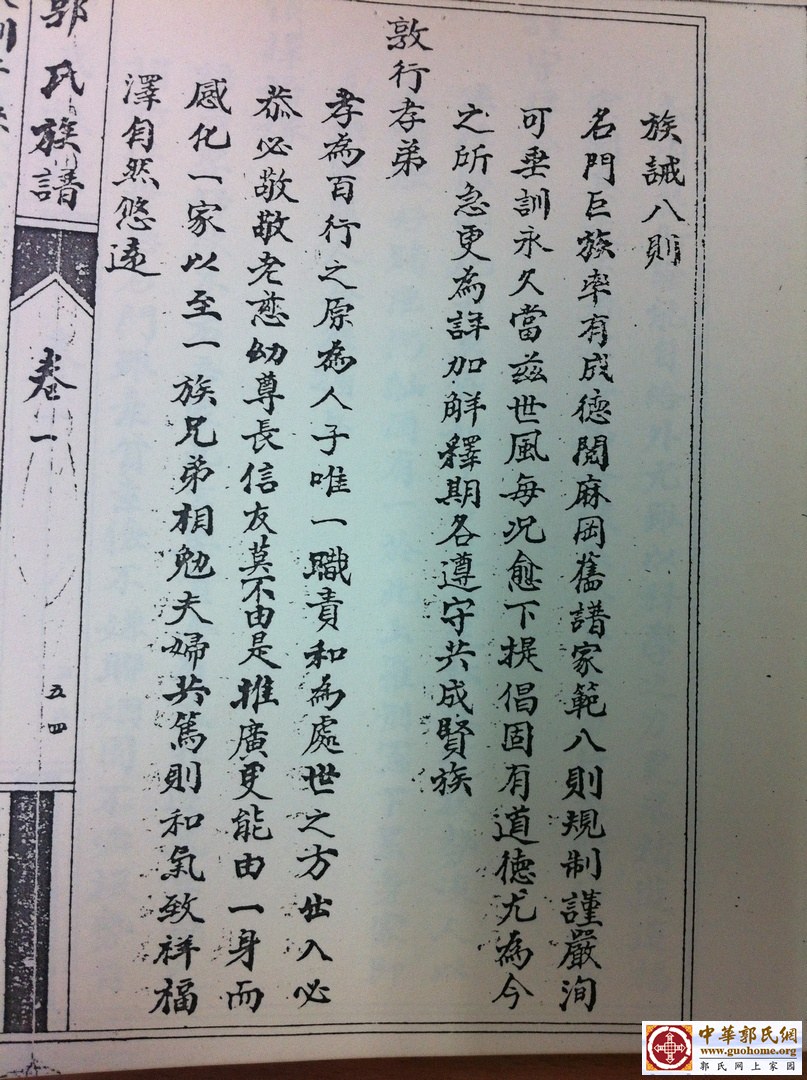 族誡八則
名門巨族率有成德閱麻岡舊譜家範八則規制謹嚴洵
可垂訓永久當兹世風每況愈下提倡固有道德尤為今
之所急更為詳加解釋期各遵守共成賢族
敦行孝弟
孝為百行之原為人子唯一職責和為處世之方出入必
恭必敬敬老慈幼尊長信友莫不由是推廣更能由一身而
感化一家以至一族兄弟相勉夫婦共篤則和氣致祥福
澤自然悠遠
郭氏族譜
卷一
五四
中華郭氏網
www.guohome.org
郭氏網上家園